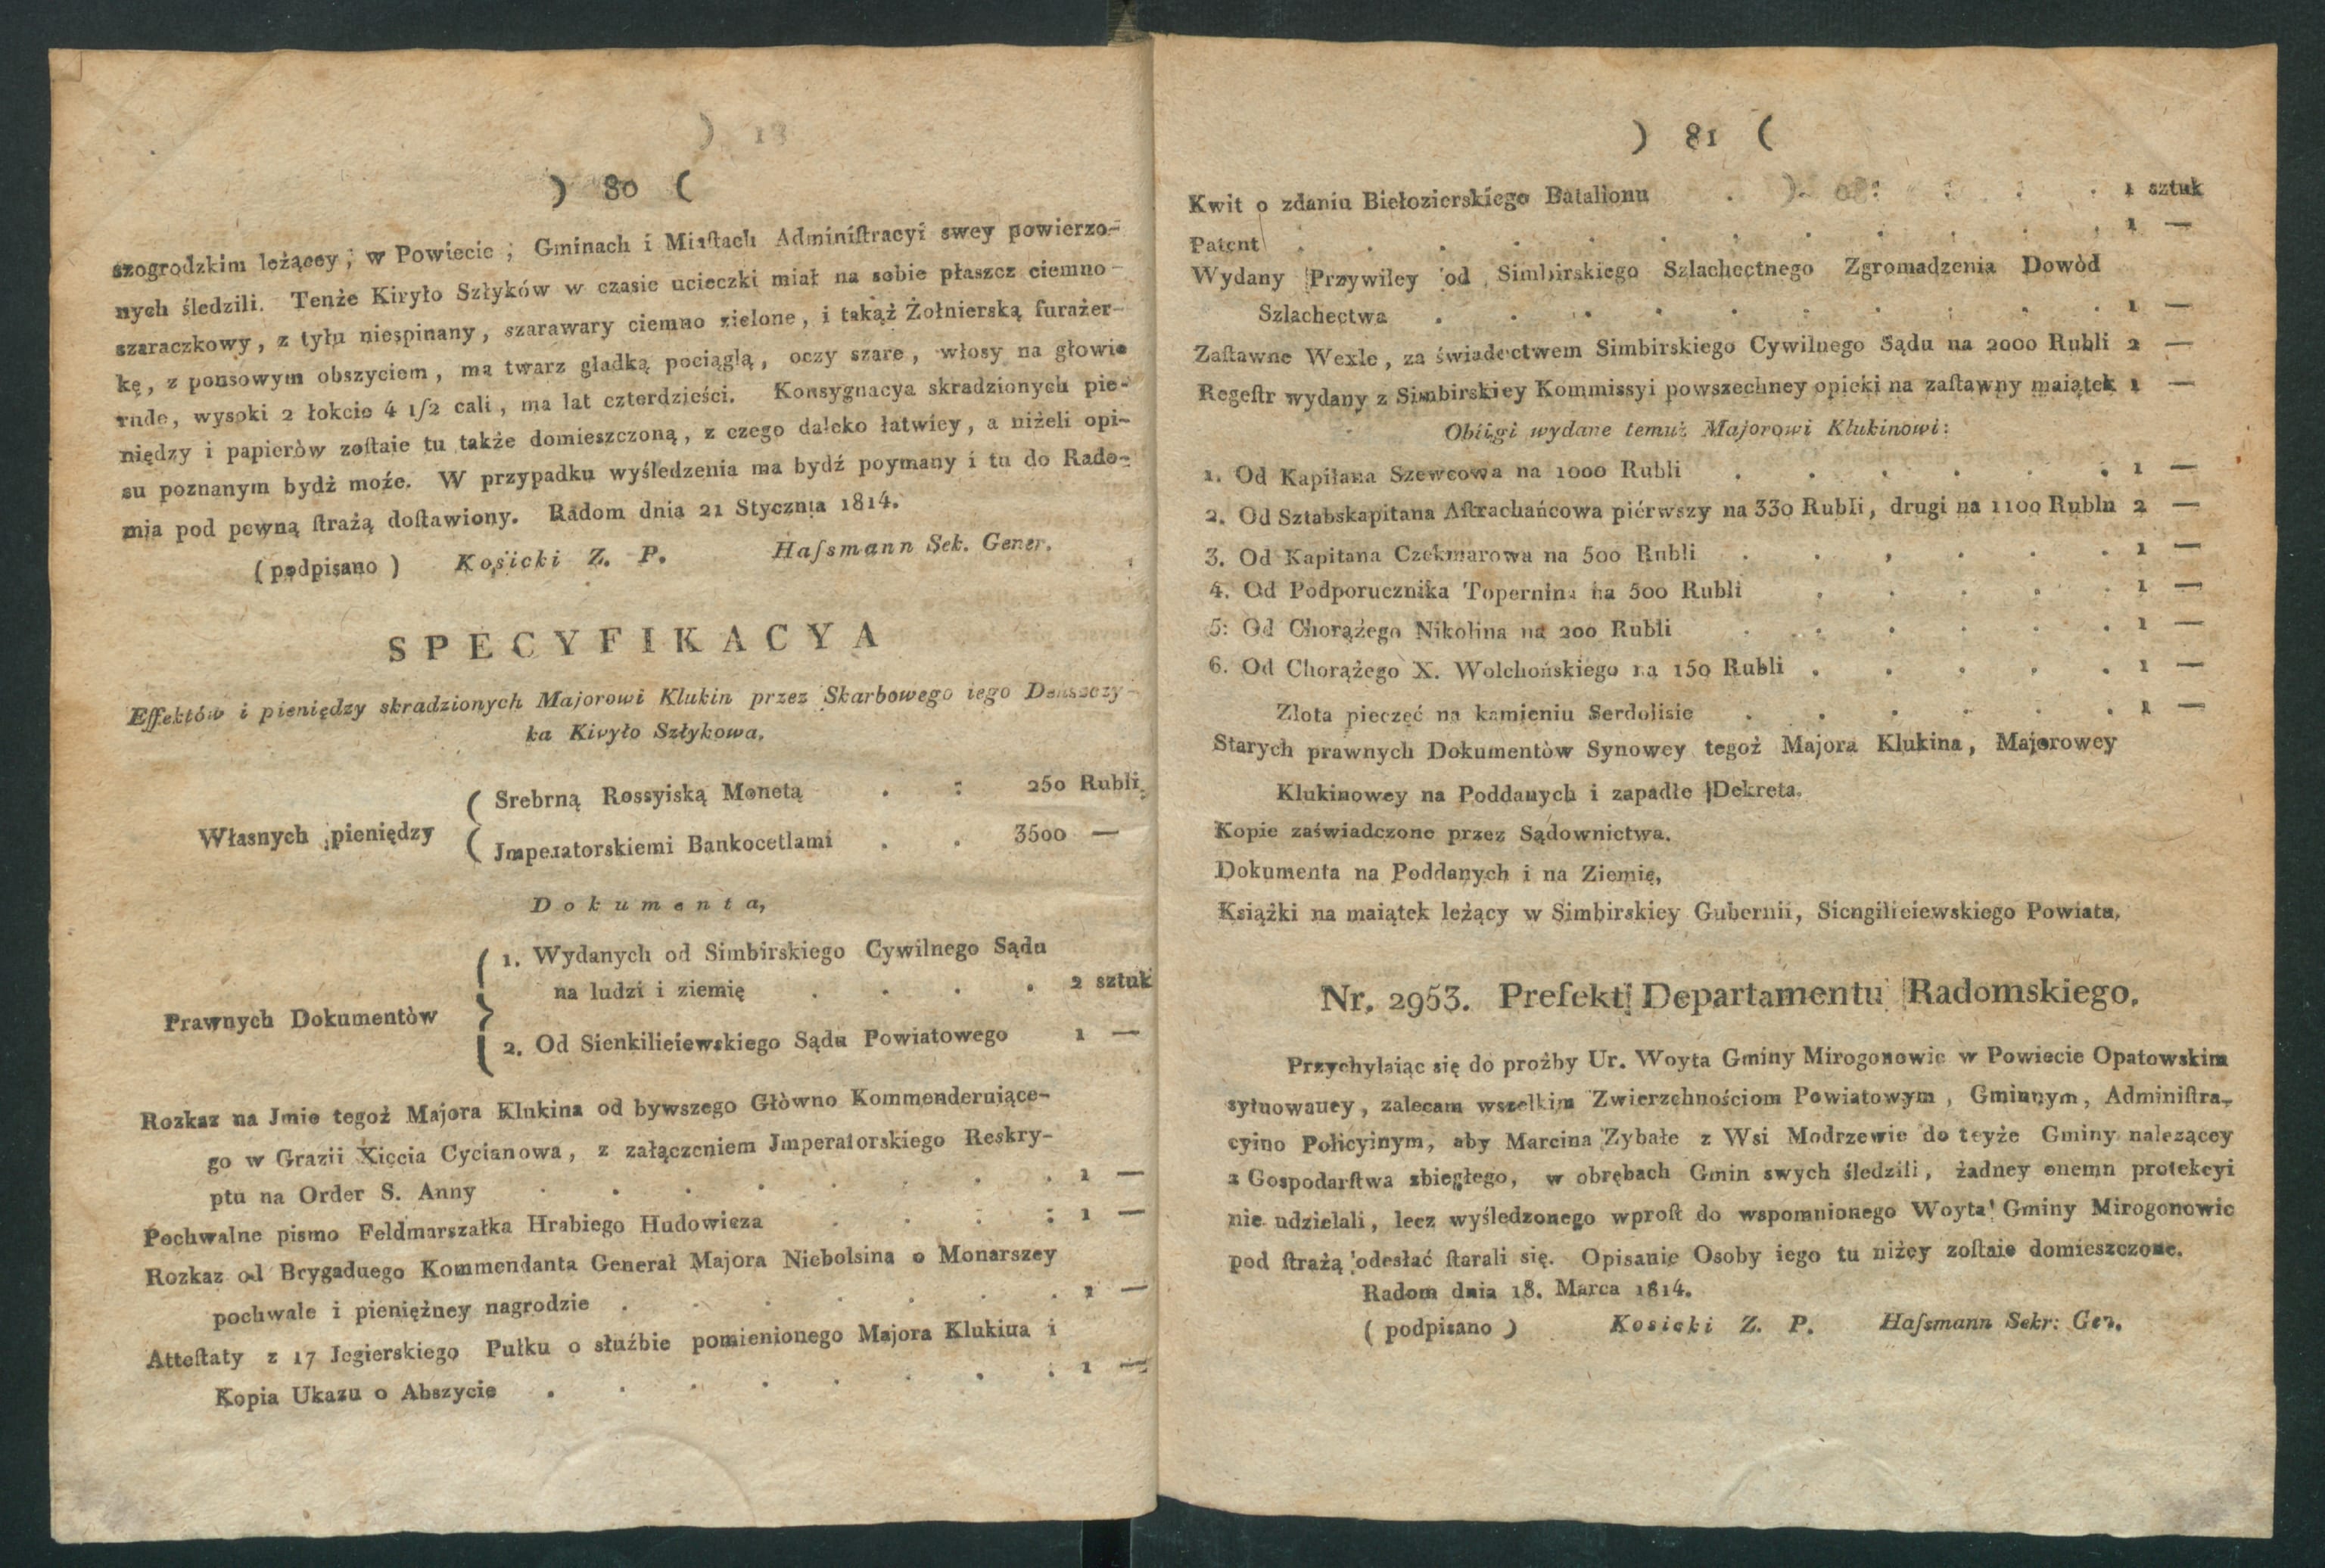 ) 80 (
szogrodzkim leżącey, w Powiecie, Gminach i Miaſtach Adminiſtracyi swey powierzo-
nych śledzili. Tenże Kiryło Szłyków w czasie ucieczki miał na sobie płaszcz ciemno-
szaraczkowy, z tyłu niespinany, szarawary ciemno zielone, i takąż Żołnierską furażer-
kę, z ponsowym obszyciem, ma twarz gładką pociągłą, oczy szare, włosy na głowie
rude, wysoki 2 łokcie 4 1/2 cali, ma lat czterdzieści. Konsygnacya skradzionych pie-
niędzy i papierów zoſtaie tu także domieszczoną, z czego daleko łatwiey, a niżeli opi-
su poznanym bydż może. W przypadku wyśledzenia ma bydź poymany i tu do Rado-
mia pod pewną ſtrażą doſtawiony. Radom dnia 21 Stycznia 1814.
(podpisano) Kosicki Z. P. Haſsmann Sek. Gener.
SPECYFIKACYA
Effektów i pieniędzy skradzionych Majorowi Klukin przez Skarbowego iego Denszczy-
ka Kiryło Szłykowa,
Własnych pieniędzy ( Srebrną Rossyiską Monetą . : 250 Rubli,
( Jmperatorskiemi Bankocetlami . . 3500 —
Dokumenta,
1. Wydanych od Simbirskiego Cywilnego Sądu
na ludzi i ziemię . . . . 2 sztuk
Prawnych Dokumentòw
2. Od Sienkilieiewskiego Sądu Powiatowego 1 —
Rozkaz na Jmie tegoż Majora Klukina od bywszego Głòwno Kommenderuiące-
go w Grazii Xięcia Cycianowa, z załączeniem Jmperatorskiego Reskry-
ptu na Order S. Anny . . . . . . . . 1 —
Pochwalne pismo Feldmarszałka Hrabiego Hudowicza . . . : 1 —
Rozkaz od Brygaduego Kommendanta Generał Majora Niebolsina o Monarszey
pochwale i pieniężney nagrodzie . . . . . . . 1 —
Atteſtaty z 17 Jegierskiego Pułku o służbie pomienionego Majora Klukiua i
Kopia Ukazu o Abszycie . . . . . . . . 1 —
) 81 (
Kwit o zdaniu Biełozierskiego Batalionu . . . . . . 1 sztuk
Patent . . . . . . . . . . . . 1 —
Wydany Przywiley od Simbirskiego Szlachectnego Zgromadzenia Dowòd
Szlachectwa . . . . . . . . . . 1 —
Zaſtawne Wexle, za świadectwem Simbirskiego Cywilnego Sądu na 2000 Rubli 2 —
Regeſtr wydany z Simbirskiey Kommissyi powszechney opieki na zaſtawny maiątek 1 —
Obligi wydane temuż Majorowi Klukinowi:
1. Od Kapitana Szewcowa na 1000 Rubli . . . . . . 1 —
2. Od Sztabskapitana Aſtrachańcowa piérwszy na 330 Rubli, drugi na 1100 Rubln 2 —
3. Od Kapitana Czekmarowa na 500 Rubli . . , . . . 1 —
4. Od Podporucznika Topernina na 500 Rubli . . . . . 1 —
5: Od Chorążego Nikolina na 200 Rubli . . . . . . 1 —
6. Od Chorążego X. Wolchońskiego na 150 Rubli . . . . . 1 —
Złota pieczęć na kamieniu Serdolisie . . . . . . 1 —
Starych prawnych Dokumentòw Synowey tegoż Majora Klukina, Majorowey
Klukinowey na Poddanych i zapadłe Dekreta.
Kopie zaświadczone przez Sądownictwa.
Dokumenta na Poddanych i na Ziemię,
Książki na maiątek leżący w Simbirskiey Gubernii, Siengilieiewskiego Powiatu,
Nr. 2953. Prefekt Departamentu Radomskiego.
Przychylaiąc się do proźby Ur. Woyta Gminy Mirogonowic w Powiecie Opatowskim
sytuowauey, zalecam wszelkim Zwierzchnościom Powiatowym, Gminnym, Adminiſtra-
cyino Policyinym, aby Marcina Zybałe z Wsi Modrzewie do teyże Gminy nalezącey
z Gospodarſtwa zbiegłego, w obrębach Gmin swych śledzili, żadney onemn protekcyi
nie udzielali, lecz wyśledzonego wproſt do wspomnionego Woyta Gminy Mirogonowic
pod ſtrażą odesłać ſtarali się. Opisanie Osoby iego tu niżey zoſtaie domieszczone.
Radom dnia 18. Marca 1814.
(podpisano) Kosicki Z. P. Haſsmann Sekr: Gen.